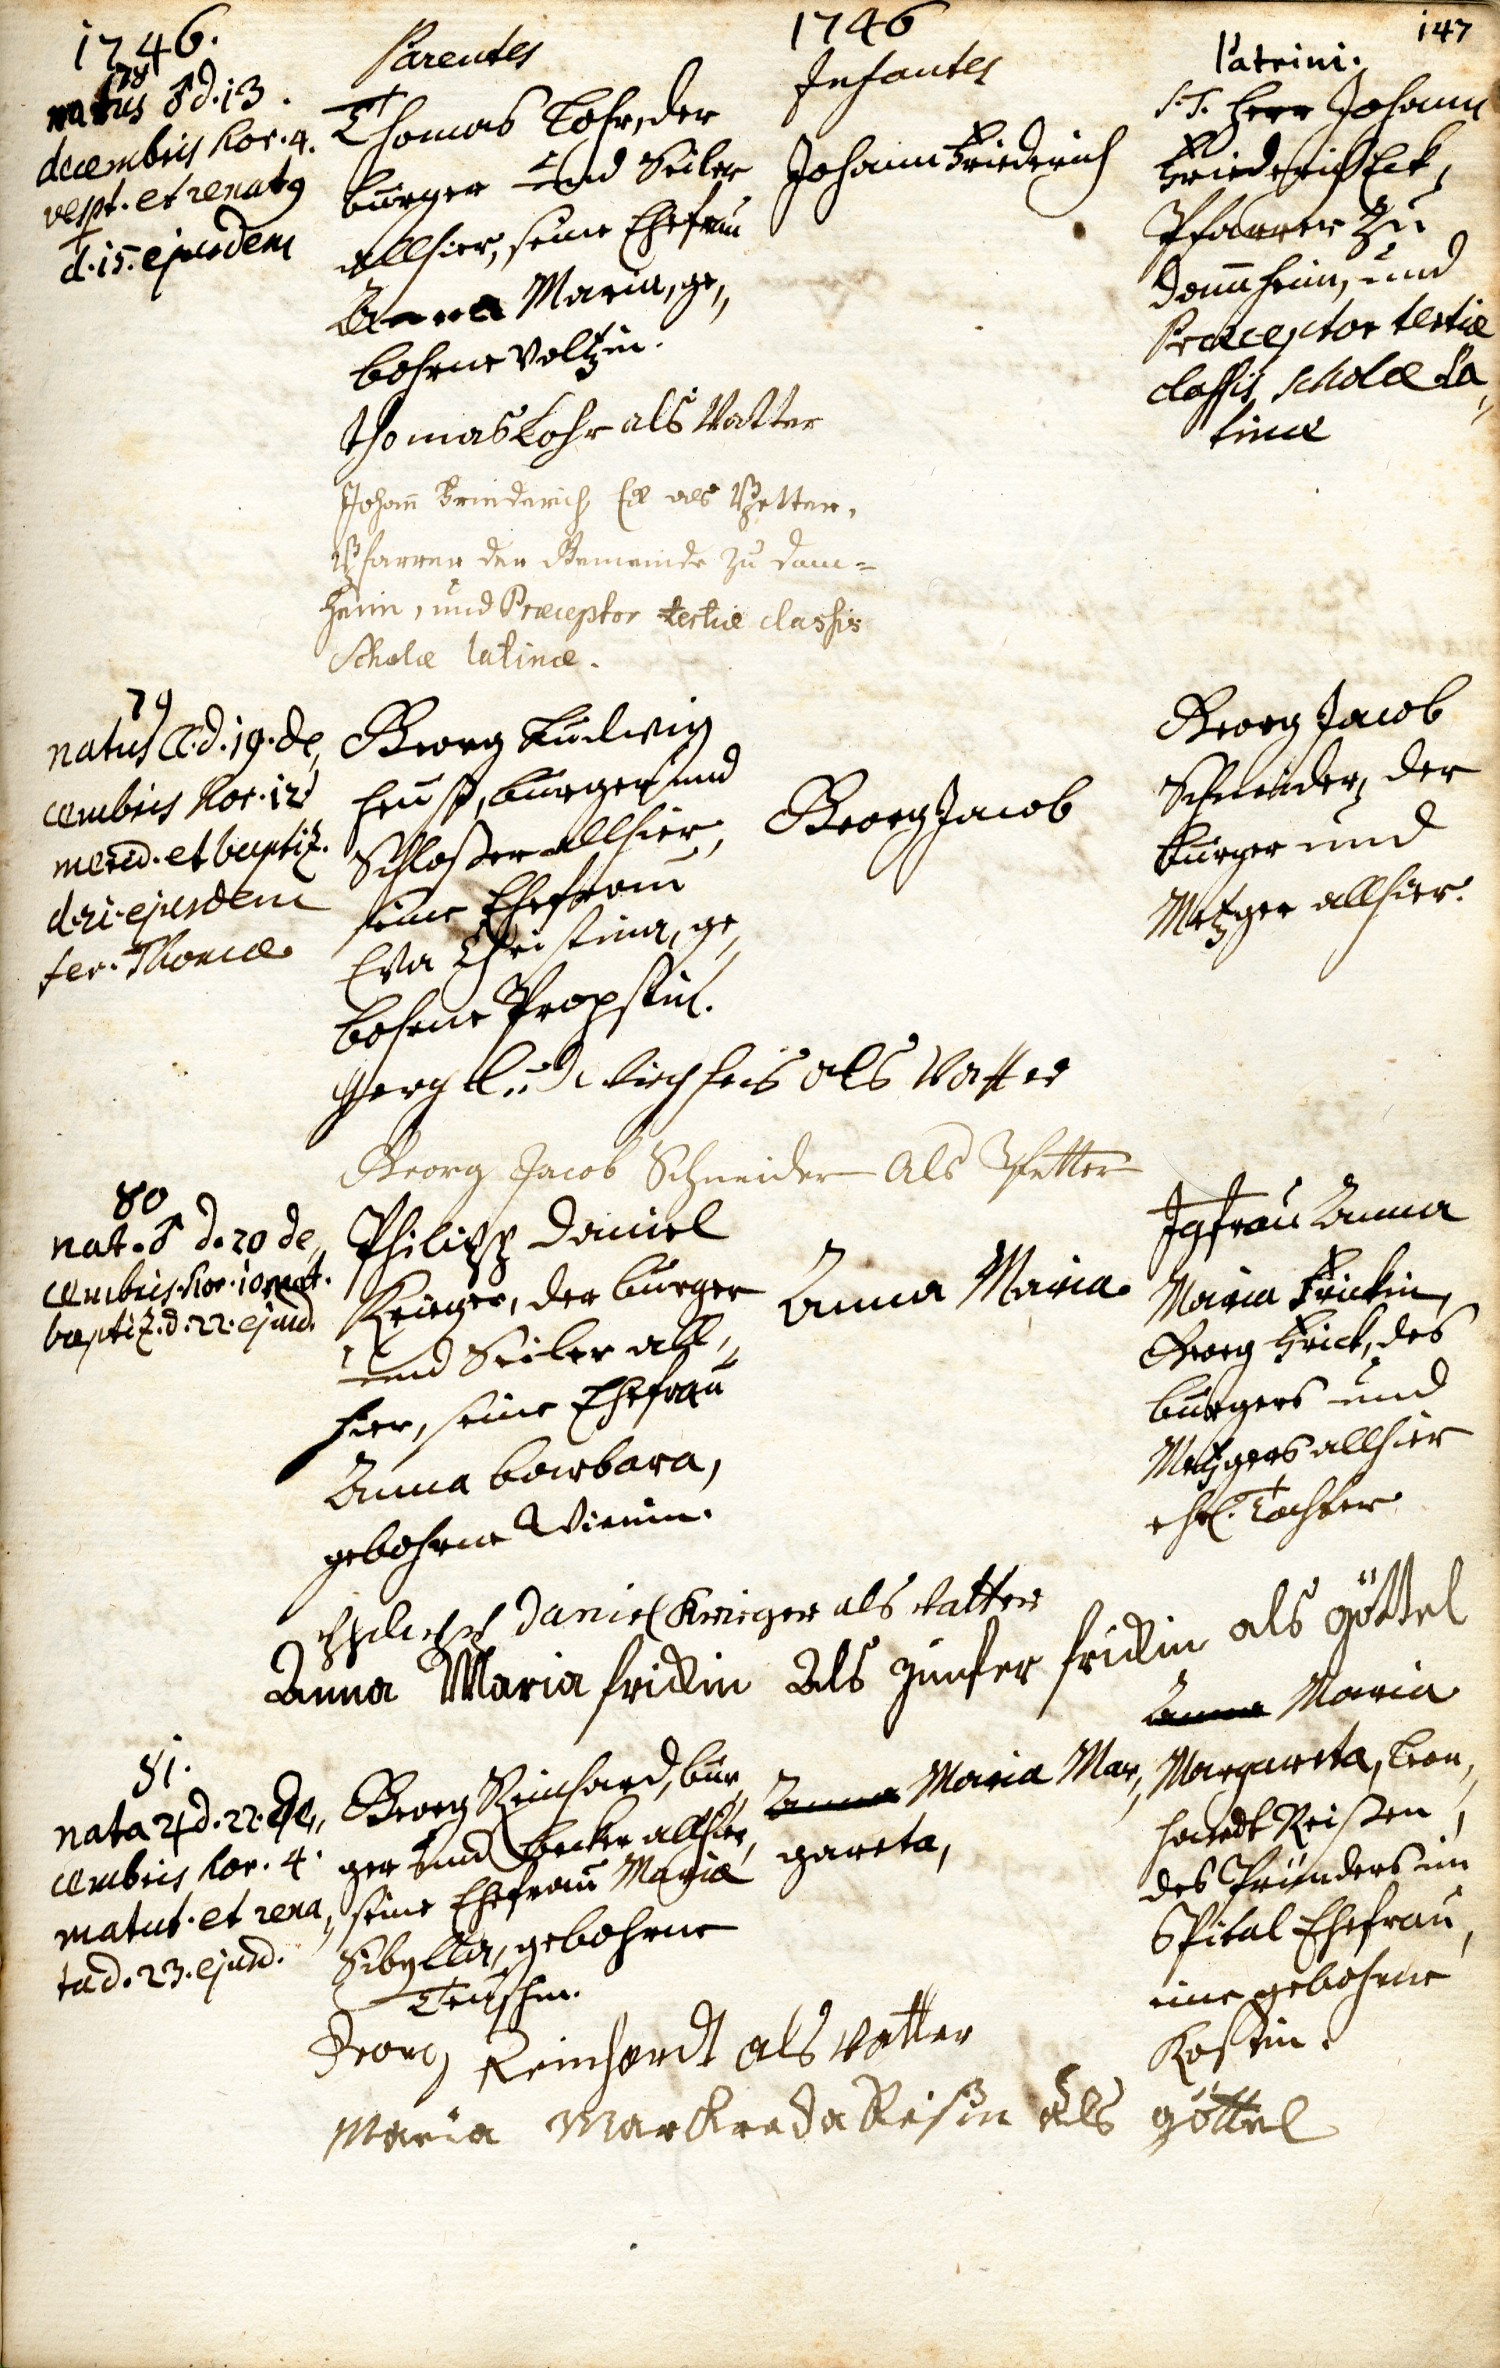 1746.
1746
147
Parentes
Infantes
Patrini.
78
natus ♂ d. 13.
decembris hor. 4.
vesp. et renatq
d. 15. ejusdem
Thomas Lohr, der
burger und Seiler
allhier, seine Ehefrau
Anna Maria, ge„
bohrne Voltzin.
Johann Friederich
S. T. Herr Johann
Friederich Eck,
Pfarrer zu
Damheim, und
Præceptor tertiæ
classis, scholæ La„
tinæ
Thomas Lohr als Vatter
Johan̄ Friederich Eck als Pfetter,
Pfarrer der Gemeinde zu Dam=
heim, und Præceptor tertiæ classis
Scholæ latinæ.
79
natus ☾. d. 19. de„
cembris hor. 12
merid. et baptiz.
d. 21. ejusdem
fer. Thomæ
Georg Ludwig
burger und
Schloßer allhier,
seine Ehefrau
Eva Christina, ge„
bohrne Propstin.
Georg Jacob
Georg Jacob
Schneider, der
burger und
Metzger allhier.
als Vatter
Georg Jacob Schneider als Pfetter
80
nat. ♂ d. 20 de„
cembris hor. 10 mat.
baptiz. d. 22. ejusd.
Philipp Daniel
Krieger, der burger
und Seiler all„
hier, seine Ehefrau
Anna barbara,
gebohrne
Anna Maria
Jgfrau Anna
Maria Frickin,
Georg Frick, des
burgers und
Metzgers allhier
ehel. Tochter
Philipp Daniel Krieger als Vatter
Anna Maria frickin als junfer frickin als göttel
81.
nata ♃ d. 22. de„
cembris hor. 4.
matut. et rena„
ta d. 23. ejusd.
Georg Reinhard, bur„
ger und becker allhier,
seine Ehefrau Maria
Sibylla, gebohrne
Anna Maria Mar„
gareta,
Anna Maria
Margareta, Leon„
hardt Reißen,
des Pfründers im
Spital Ehefrau,
eine gebohrne
Kostin.
Georg Reinhardt als Vatter
Maria Markreda Reisin als göttel